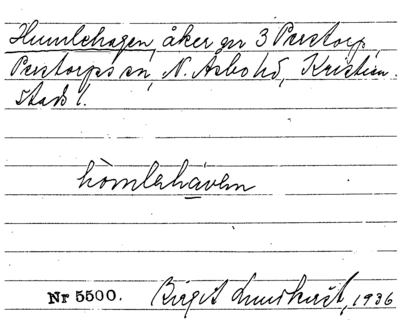 Humlehagen, åker gn 3 Perstorp,
Perstorps sn, N. Åsbo hd, Kristian-
stads l.
hòmlehàven
Nr 5500. Birgit Lundkvist, 1936